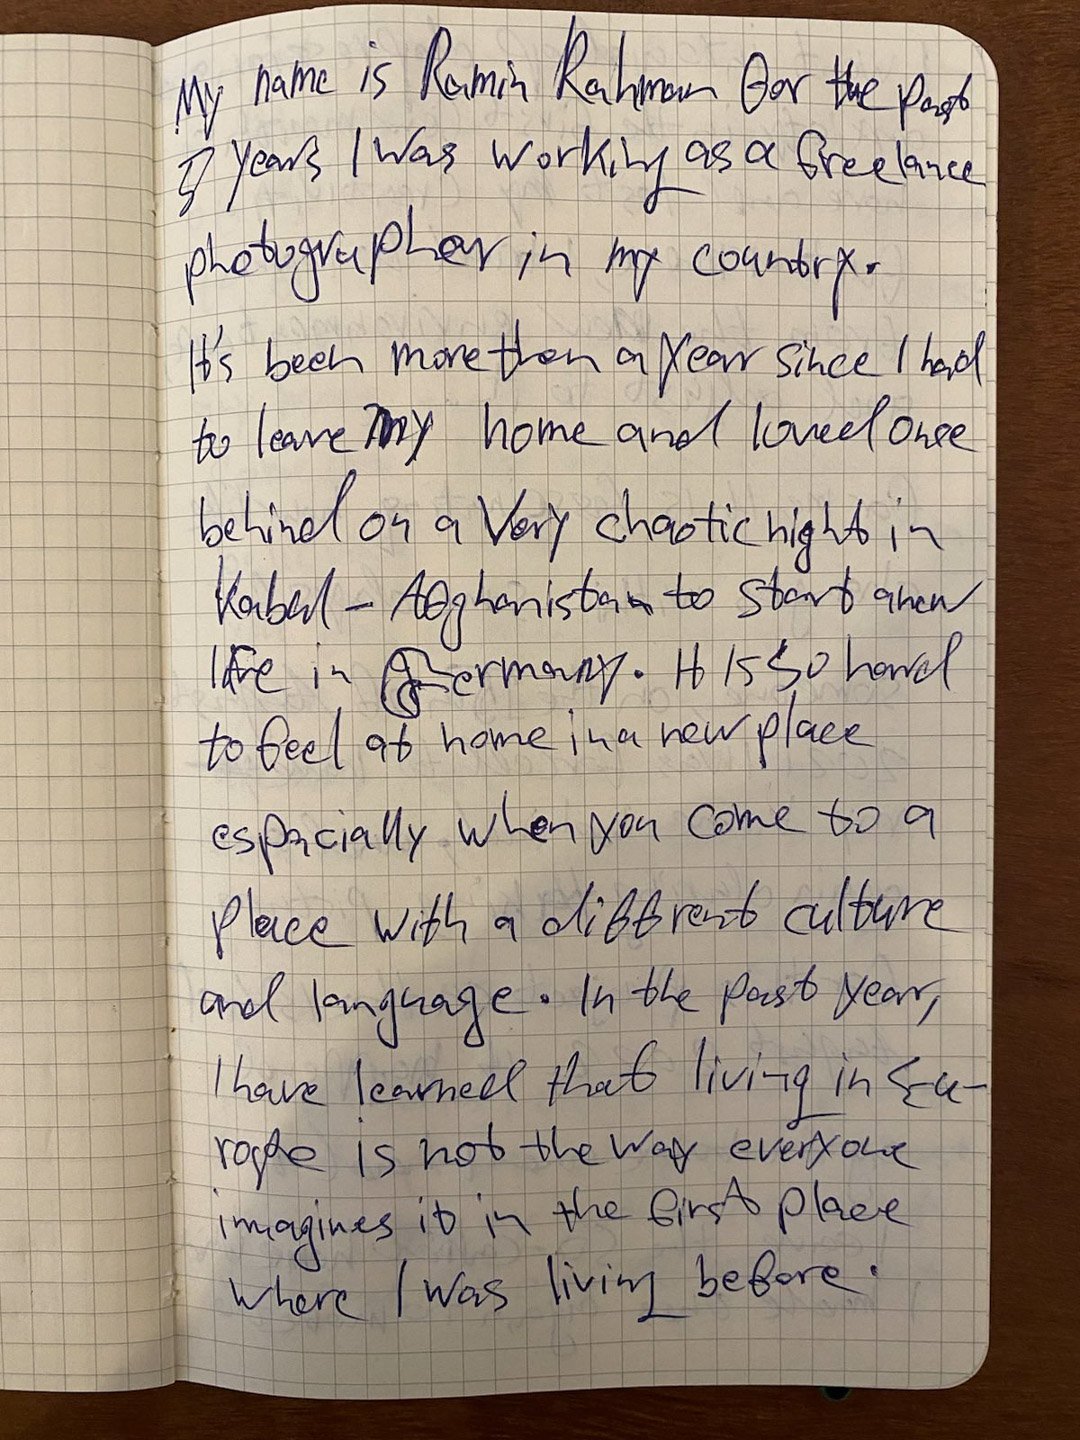 My name is Ramin Rahman for the past
7 years I was working as a freelance
photographer in my country.
It's been more then a year since I had
to leave my home and loved once
behind on a very chaotic night in
Kabul – Afghanistan to start a new
life in Germany. It is so hard
to feel at home in a new place
espacially when you come to a
place with a diffrent culture
and language. In the past year,
I have learned that living in Eu-
rope is not the way everyone
imagines it in the first place
where I was living before.